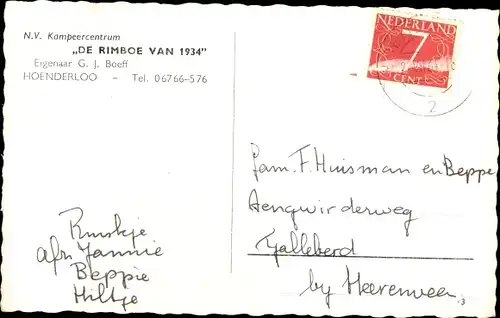 N.V. Kampeercentrum
„DE RIMBOE VAN 1934"
Eigenaar G. J. Boeff
HOENDERLOO – Tel. 06766-576
NEDERLAND
7
CENT
2
Fam. F. Huisman en Beppe
Aengwirderweg
Tjalleberd
by Heerenveen
3
afz Jannie
Beppie
Hiltje